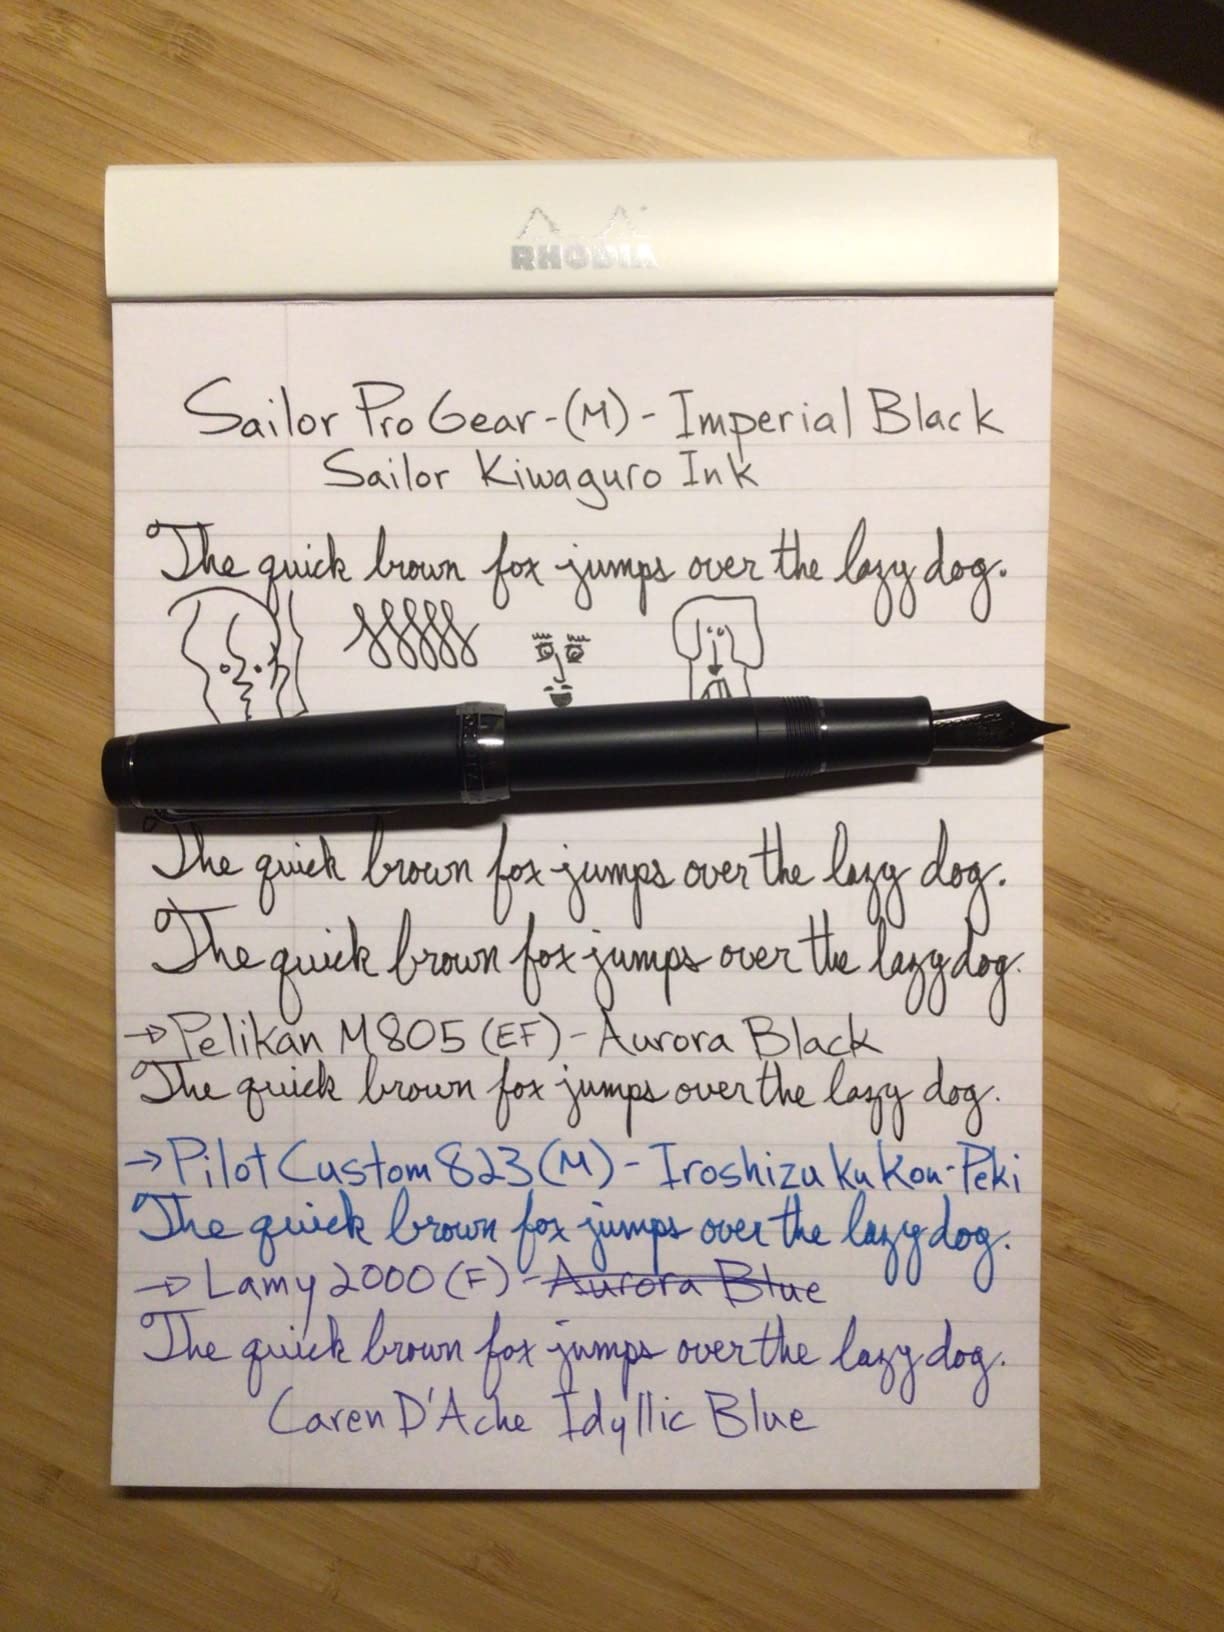 RHODIA
Sailor Pro Gear - (M) - Imperial Black
Sailor Kiwaguro Ink
The quick brown fox jumps over the lazy dog.
The quick brown fox jumps over the lazy dog.
The quick brown fox jumps over the lazy dog.
→ Pelikan M805 (EF) - Aurora Black
The quick brown fox jumps over the lazy dog.
→ Pilot Custom 823 (M) - Iroshizuku Kon-Peki
The quick brown fox jumps over the lazy dog.
→ Lamy 2000 (F) - Aurora Blue
The quick brown fox jumps over the lazy dog.
Caren D'Ache Idyllic Blue